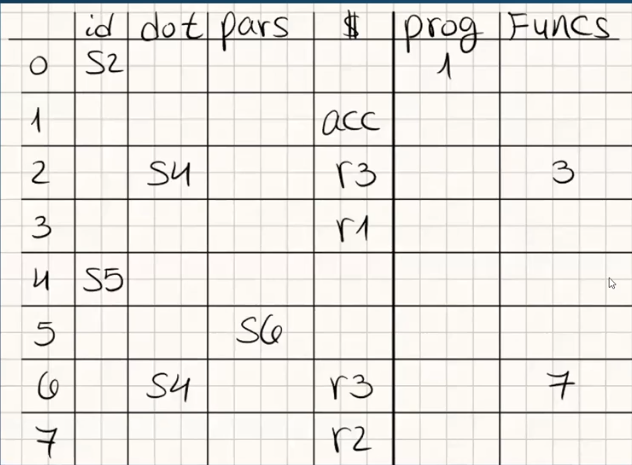 id dot pars $ prog Funcs
0 S2 1
1 acc
2 S4 r3 3
3 r1
4 S5
5 S6
6 S4 r3 7
7 r2